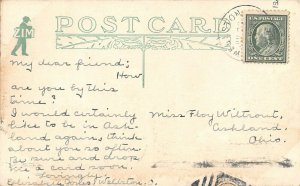 POST CARD
ZIM
U.S. POSTAGE
ONE CENT
My dear friend;
How
are you by this
time?
I would certainly
like to be in Ash-
land again, think
about you so often.
Be sure and drop
me a card soon.
Lovingly,
Miss Floy Wiltrout,
Ashland,
Ohio.